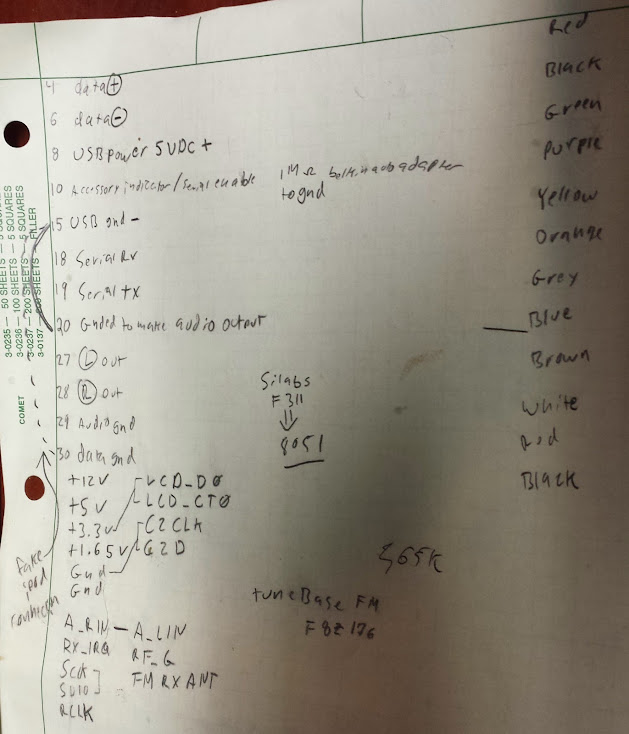 Red
Black
Green
Purple
Yellow
Orange
Grey
Blue
Brown
White
Red
Black
4 data +
6 data -
8 USB power 5VDC +
10 Accessory indicator/serial enable 1MΩ built in auto adapter
to gnd
15 USB gnd -
18 Serial Rx
19 Serial tx
20 Gnded to make audio output
27 L out
28 R out
29 Audio gnd
30 data gnd
Silabs
F311
8051
+12V
+5V
+3.3V
+1.65V
Gnd
Gnd
LCD_D0
LCD_CT0
C2CLK
C2D
565K
tuneBase FM
F8Z176
A_RIN — A_LIN
RX_IRQ RF_G
SCLK FM RX ANT
SDIO
RCLK
fake
ipod
3-0235 — 50 SHEETS — 5 SQUARES
3-0236 — 100 SHEETS — 5 SQUARES
3-0237 — 200 SHEETS — 5 SQUARES
3-0137 — 200 SHEETS — FILLER
COMET